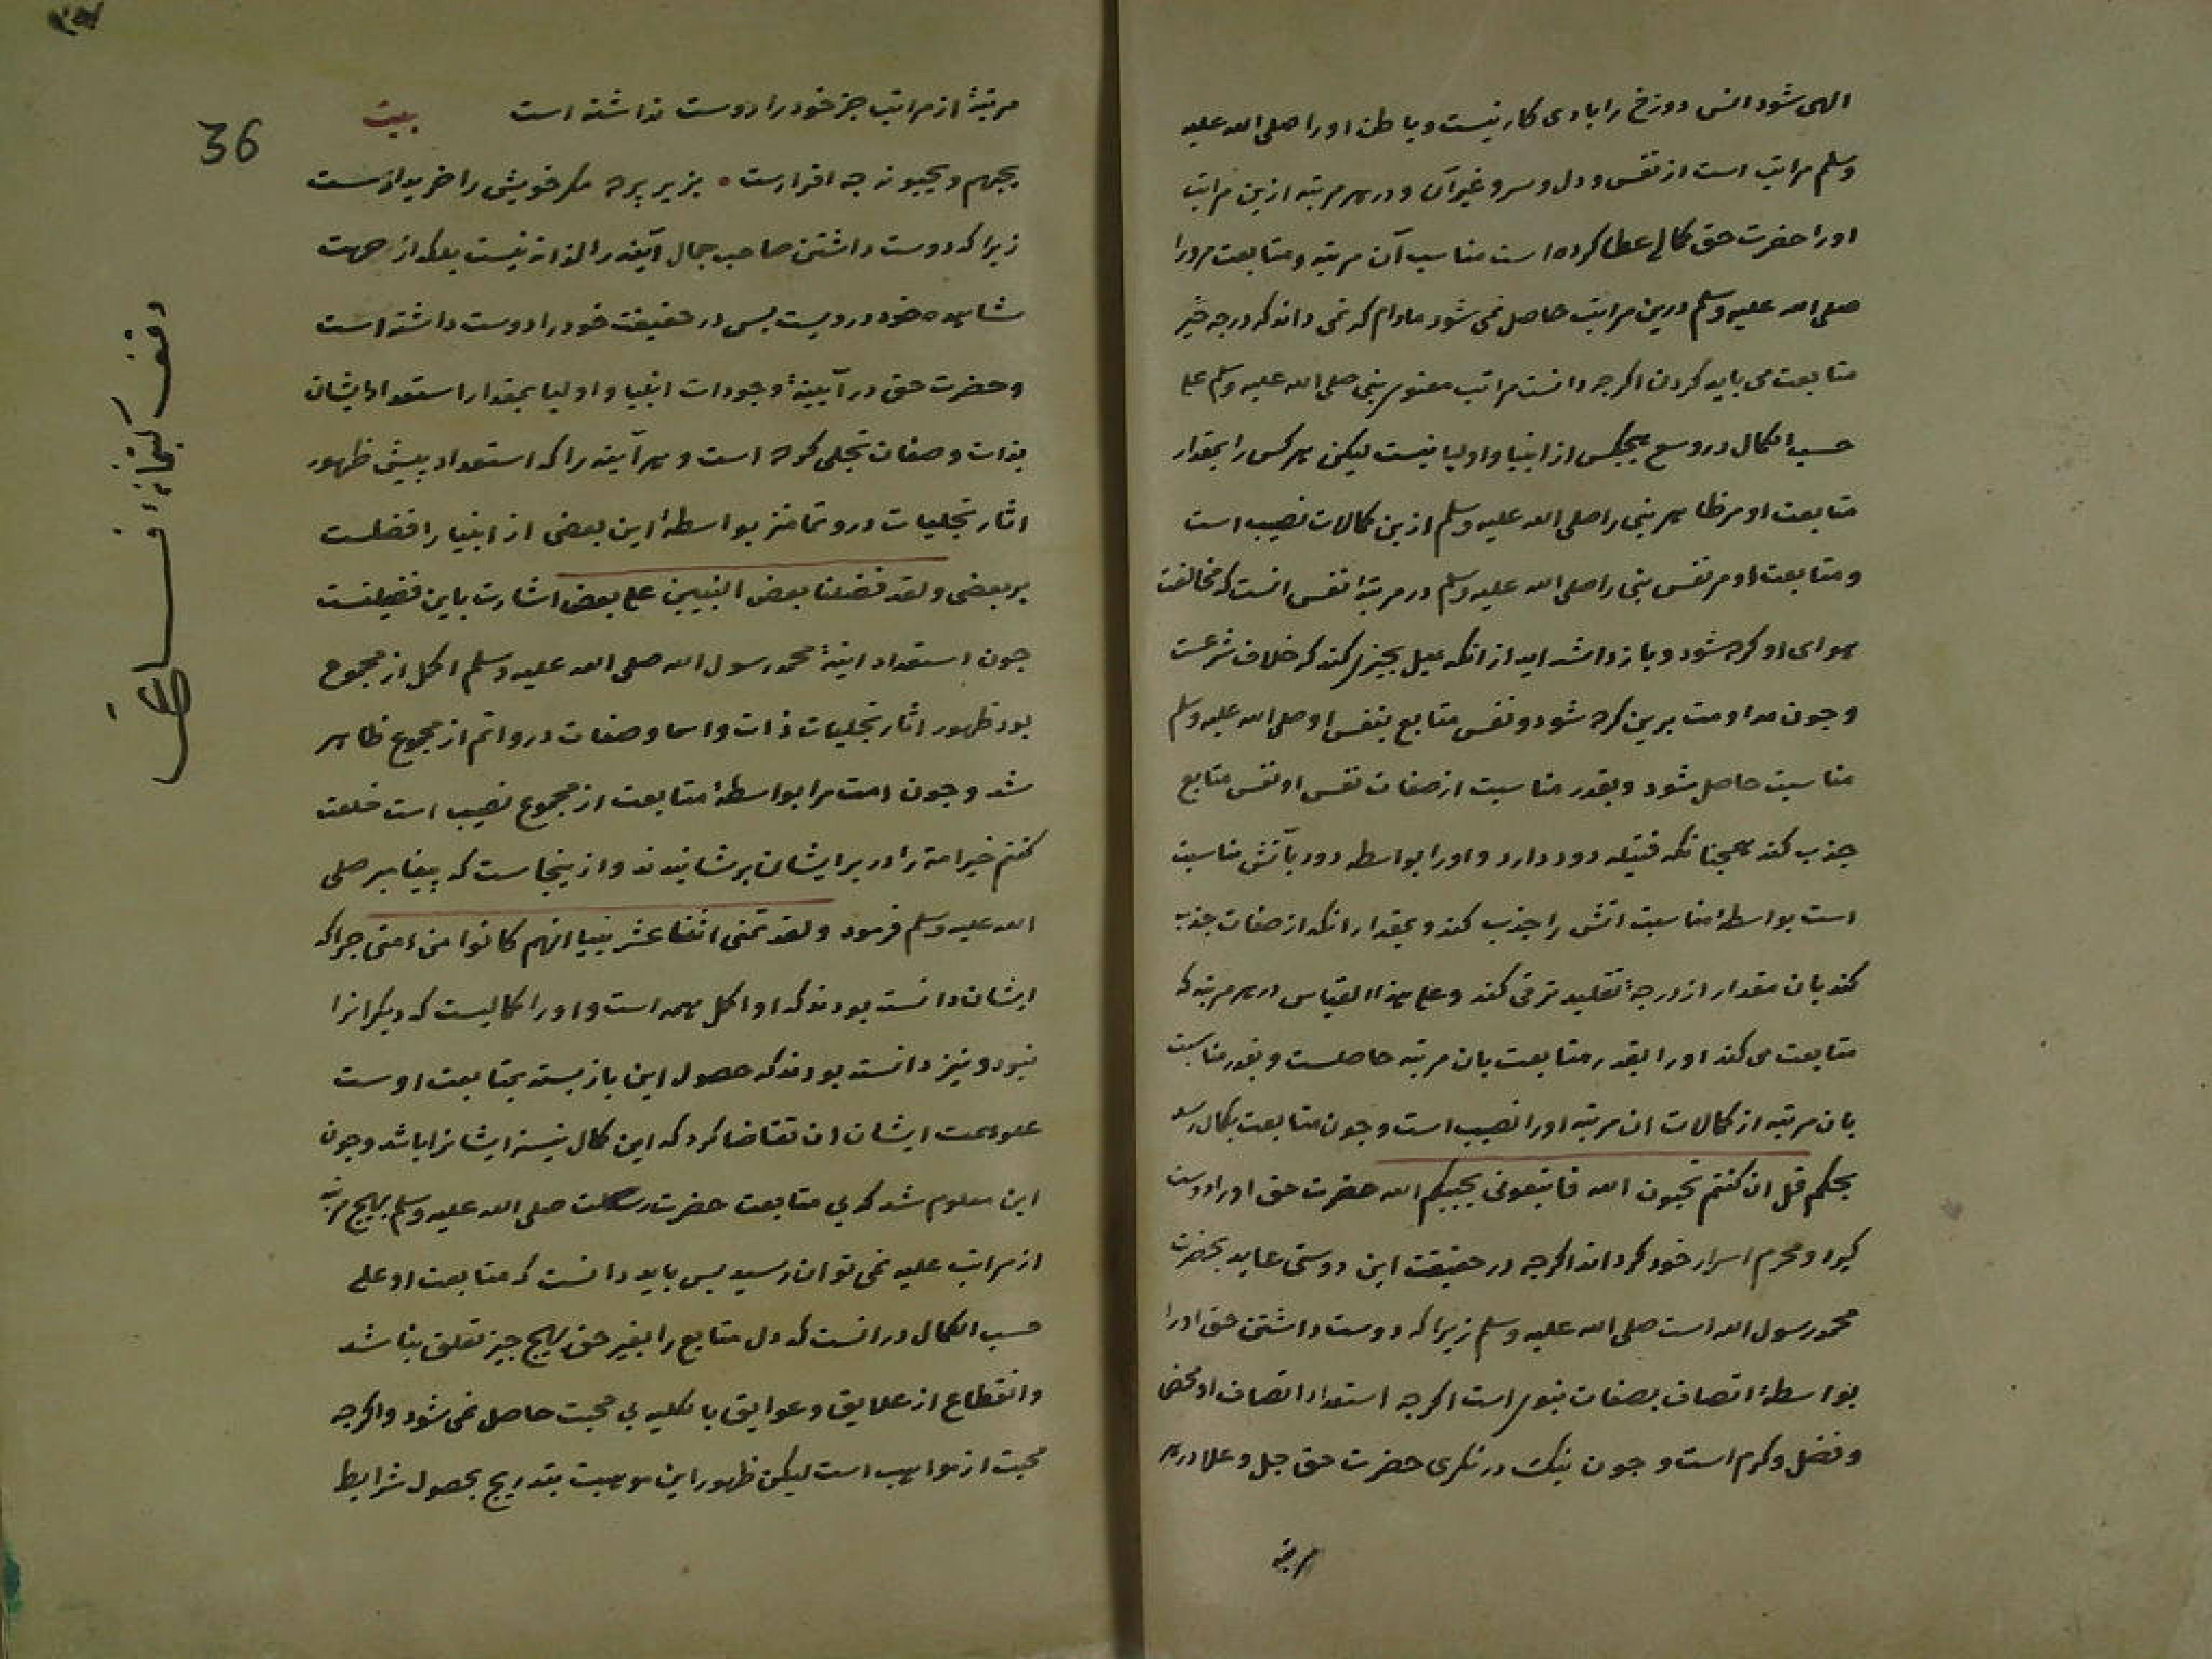 الهی شود اتش دوزخ را با وی کار نیست و باطن او را صلی الله علیه
وسلم مراتب است از نفس و دل و سر و غیر آن و در هر مرتبه ازین مراتب
او را حضرت حق کمالی عطا کرده است مناسب آن مرتبه و متابعت مرورا
صلی الله علیه وسلم درین مراتب حاصل نمی شود مادام که نمی داند که در چه چیز
متابعت می باید کردن اکرچه دانستن مراتب معنوی نبی صلی الله علیه وسلم علی
حسب الکمال در وسع هیچکس از انبیا و اولیا نیست لیکن هر کس را بمقدار
متابعت او مر ظاهر نبی را صلی الله علیه وسلم ازین کمالات نصیب است
و متابعت او مر نفس نبی را صلی الله علیه وسلم در مرتبهٔ نفس انست که مخالفت
هوای او کرده شود و باز داشته اید از انکه میل بچیزی کند که خلاف شرعست
و چون مداومت برین کرده شود و نفس متابع بنفس او صلی الله علیه وسلم
مناسبت حاصل شود و بقدر مناسبت از صفات نفس او نفس متابع
جذب کند همچنانکه فتیله دود دارد و او را بواسطه دود بآتش مناسبت
است بواسطهٔ مناسبت اتش را جذب کند و بمقدار انکه از صفات جذب
کند بان مقدار از درجهٔ تقلید ترقی کند و علی هذا القیاس در هر مرتبه که
متابعت می کند او را بقدر متابعت بان مرتبه حاصلست و بقدر مناسبت
بان مرتبه از کمالات ان مرتبه او را نصیب است و چون متابعت بکمال رسد
بحکم قل ان کنتم تحبون الله فاتبعونی یحببکم الله حضرت حق او را دوست
کیرد و محرم اسرار خود کرداند اکرچه در حقیقت این دوستی عاید بحضرت
محمد رسول الله است صلی الله علیه وسلم زیرا که دوست داشتن حق او را
بواسطهٔ اتصاف بصفات نبوی است اکرچه استعداد اتصاف او محض
و فضل و کرم است و چون نیک در نکری حضرت حق جل و علا در هر
مرتبه
36
مرتبهٔ از مراتب جز خود را دوست نداشته است بیت
یحبهم و یحبونه چه اقرارست بزیر پرده مکر خویش را خریدارست
زیرا که دوست داشتن صاحب جمال آینه را لذاته نیست بلکه از جهت
مشاهده خود در ویست پس در حقیقت خود را دوست داشته است
و حضرت حق در آیینهٔ وجودات انبیا و اولیا بمقدار استعداد ایشان
بذات و صفات تجلی کرده است و هر آینه را که استعداد بیش ظهور
اثار تجلیات درو تمامتر بواسطهٔ این بعضی از انبیا را فضلست
بر بعضی و لقد فضلنا بعض النبیین علی بعض اشارت باین فضیلتست
چون استعداد اینهٔ محمد رسول الله صلی الله علیه وسلم اکمل از مجموع
بود ظهور اثار تجلیات ذات و اسما و صفات درو اتم از مجموع ظاهر
شد و چون امت را بواسطهٔ متابعت از مجموع نصیب است خلعت
کنتم خیر امة را در بر ایشان پوشانیدند و ازینجاست که پیغامبر صلی
الله علیه وسلم فرمود و لقد تمنی اثنا عشر نبیا انهم کانوا من امتی چرا که
ایشان دانسته بودند که او اکمل همه است و او را کمالیست که دیکرانرا
نبود و نیز دانسته بودند که حصول این باز بسته بمتابعت اوست
علو همت ایشان ان تقاضا کرد که این کمال نیز ایشانرا باشد و چون
این معلوم شد که بی متابعت حضرت رسالت صلی الله علیه وسلم بهیچ مرتبه
از مراتب علیه نمی توان رسید پس باید دانست که متابعت او علی
حسب الکمال در انست که دل متابع را بغیر حق بهیچ چیز تعلق نباشد
و انقطاع از علایق و عوایق بالکلیه بی محبت حاصل نمی شود و اکرچه
محبت از مواهب است لیکن ظهور این موهبت بتدریج بحصول شرایط
وقف کتبخانهٔ